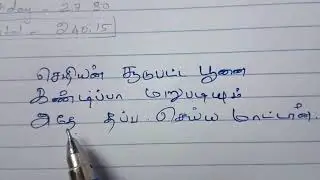 day - 27.20
240.15
செழியன் சூடுபட்ட பூனை
கண்டிப்பா மறுபடியும்
அதே தப்ப செய்ய மாட்டான்.